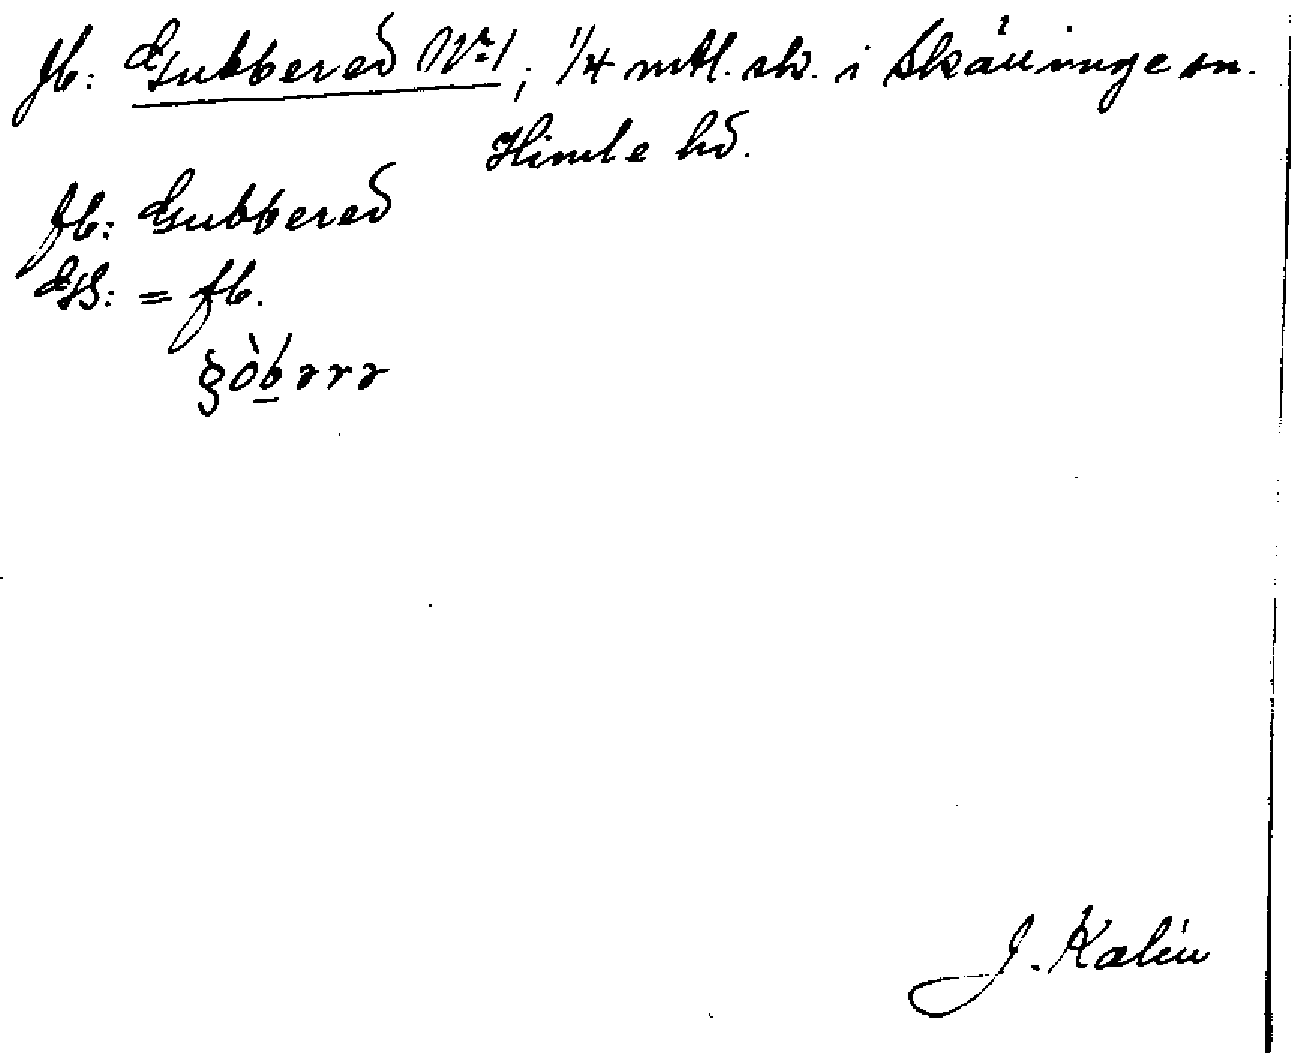 Jb: Gubbered Nr 1, 1/4 mtl. sk. i Skällinge sn.
Himle hd.
fb: Gubbered
GS: = fb.
J. Kalén